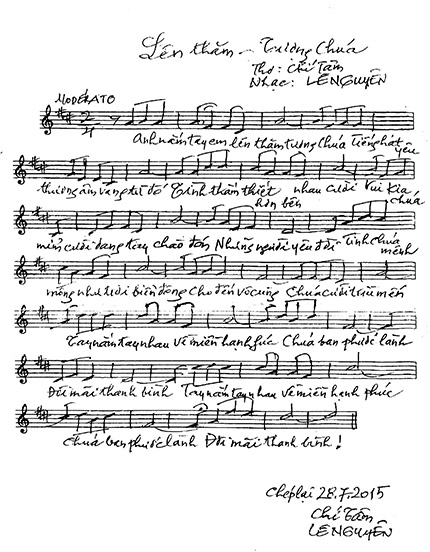 Lên thăm - Tượng Chúa
Thơ: Chí Tâm
Nhạc: LÊ NGUYỄN
MODÉRATO
2/4
Anh nắm tay em lên thăm tượng Chúa Tiếng hát yêu
thương âm vang từ đó Tình thắm thiết nhau cười Vui Kìa
hôn bên chúa
mỉm cười dang tay chào đón Những người yêu đời - Tình chúa
mênh
mông như trời biển đông Cho đến vô cùng Chúa cười trìu mến
Tay nắm tay nhau về miền hạnh phúc Chúa ban phước lành
Đời mãi thanh bình Tay nắm tay nhau về miền hạnh phúc
chúa ban phước lành Đời mãi thanh bình!
Chép lại 28.7.2015
Chí Tâm
LÊ NGUYỄN